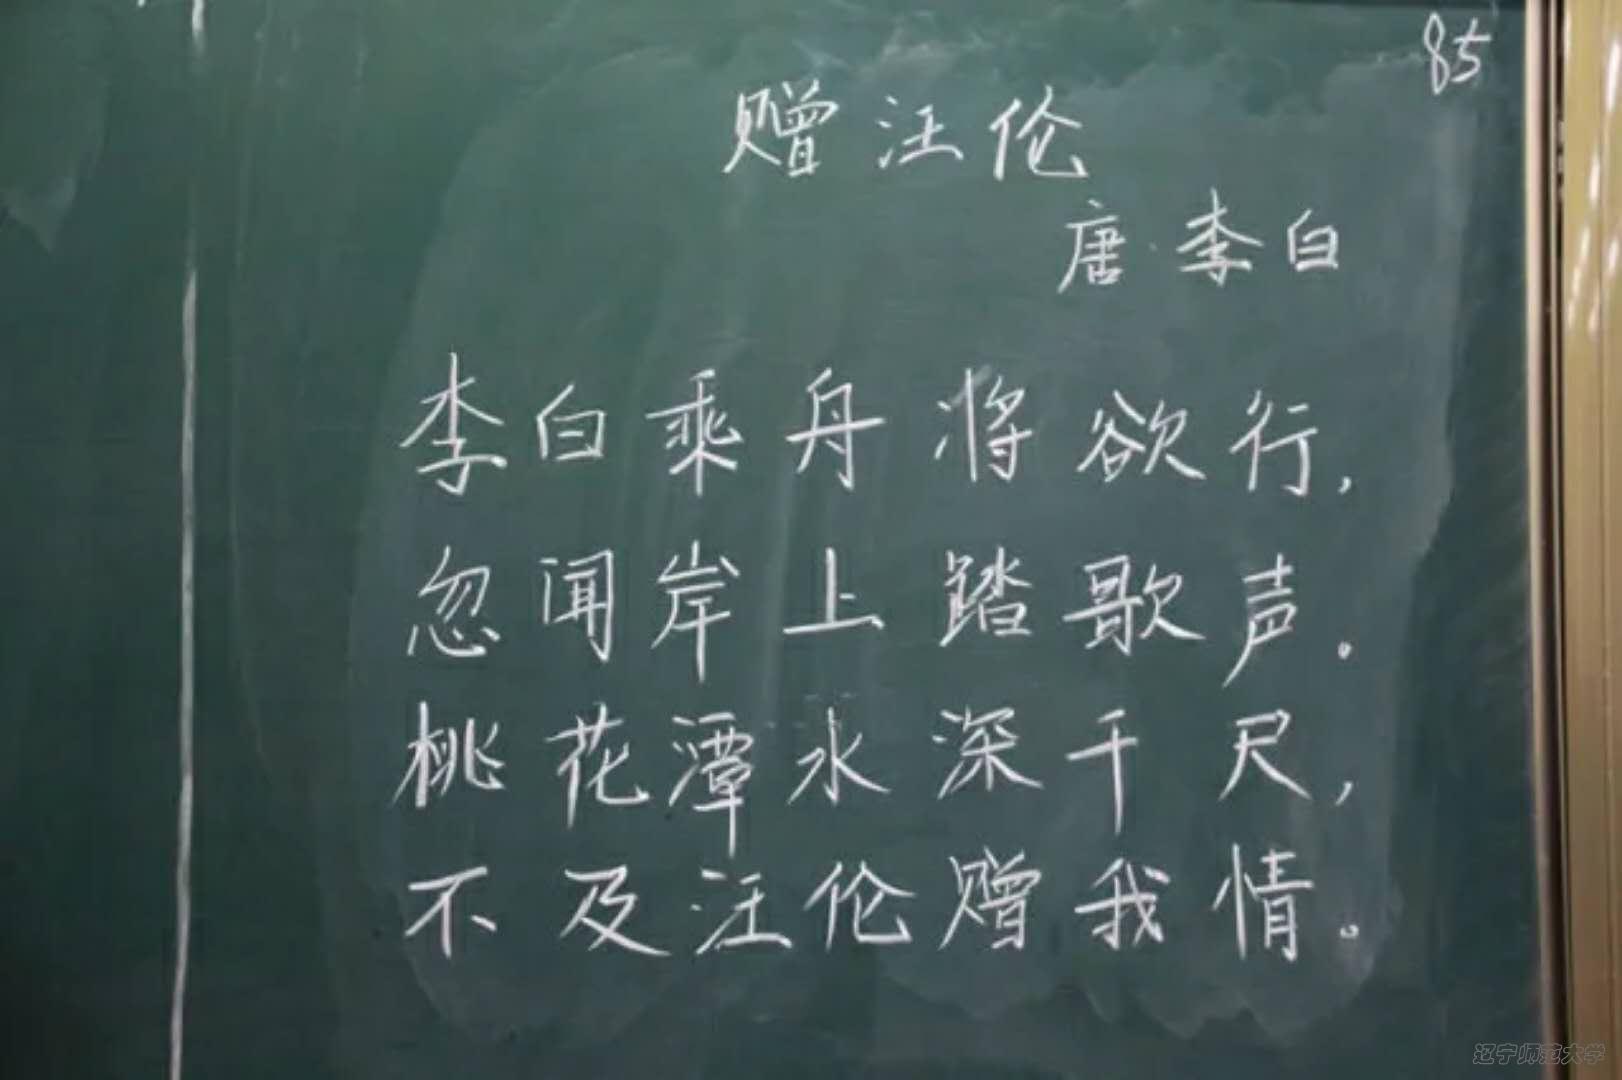 85
赠汪伦
唐·李白
李白乘舟将欲行，
忽闻岸上踏歌声。
桃花潭水深千尺，
不及汪伦赠我情。
辽宁师范大学